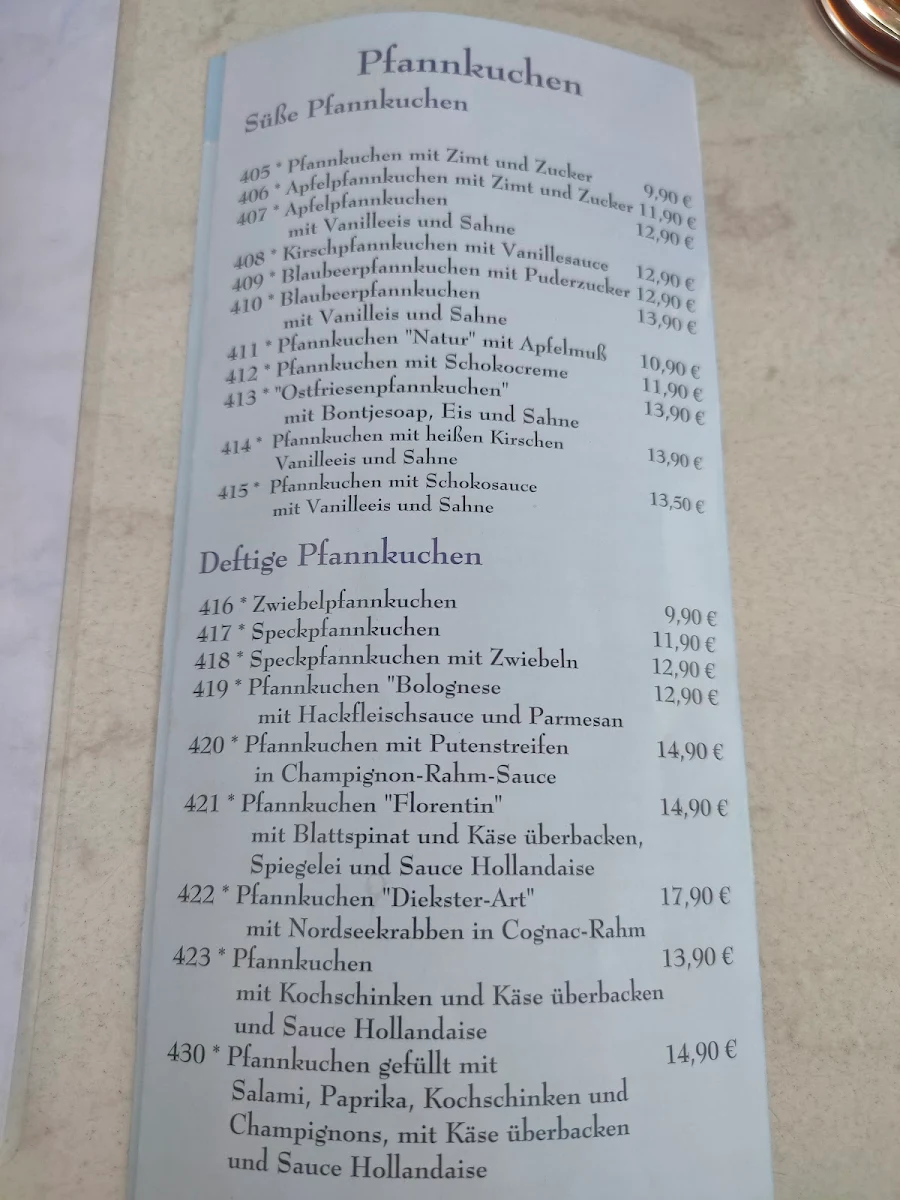 Pfannkuchen
Süße Pfannkuchen
405 * Pfannkuchen mit Zimt und Zucker 9,90 €
406 * Apfelpfannkuchen mit Zimt und Zucker 11,90 €
407 * Apfelpfannkuchen 12,90 €
mit Vanilleeis und Sahne
408 * Kirschpfannkuchen mit Vanillesauce 12,90 €
409 * Blaubeerpfannkuchen mit Puderzucker 12,90 €
410 * Blaubeerpfannkuchen 13,90 €
mit Vanilleis und Sahne
411 * Pfannkuchen "Natur" mit Apfelmuß 10,90 €
412 * Pfannkuchen mit Schokocreme 11,90 €
413 * "Ostfriesenpfannkuchen" 13,90 €
mit Bontjesoap, Eis und Sahne
414 * Pfannkuchen mit heißen Kirschen 13,90 €
Vanilleeis und Sahne
415 * Pfannkuchen mit Schokosauce 13,50 €
mit Vanilleeis und Sahne
Deftige Pfannkuchen
416 * Zwiebelpfannkuchen 9,90 €
417 * Speckpfannkuchen 11,90 €
418 * Speckpfannkuchen mit Zwiebeln 12,90 €
419 * Pfannkuchen "Bolognese 12,90 €
mit Hackfleischsauce und Parmesan
420 * Pfannkuchen mit Putenstreifen 14,90 €
in Champignon-Rahm-Sauce
421 * Pfannkuchen "Florentin" 14,90 €
mit Blattspinat und Käse überbacken,
Spiegelei und Sauce Hollandaise
422 * Pfannkuchen "Diekster-Art" 17,90 €
mit Nordseekrabben in Cognac-Rahm
423 * Pfannkuchen 13,90 €
mit Kochschinken und Käse überbacken
und Sauce Hollandaise
430 * Pfannkuchen gefüllt mit 14,90 €
Salami, Paprika, Kochschinken und
Champignons, mit Käse überbacken
und Sauce Hollandaise